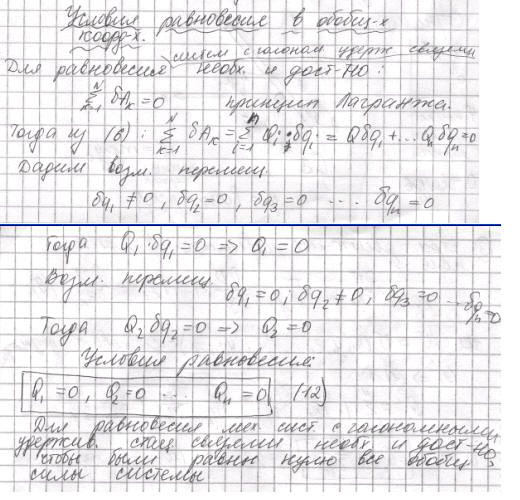 Условия равновесия в обобщ-х
коорд-х.
систем с голоном. удерж связями
Для равновесия необх. и дост-но:
N Σ k=1 δA_k = 0 принцип Лагранжа.
Тогда из (6): N Σ k=1 δA_k = n Σ i=1 Q_i · δq_i = Qδq_1 + ... Q_n δq_n = 0
Дадим возм. перемещ.
δq_1 ≠ 0, δq_2 = 0, δq_3 = 0 ... δq_n = 0
Тогда Q_1 · δq_1 = 0 => Q_1 = 0
Возм. перемещ.
δq_1 = 0; δq_2 ≠ 0, δq_3 = 0 ... δq_n = 0
Тогда Q_2 δq_2 = 0 => Q_2 = 0
Условия равновесия:
Q_1 = 0, Q_2 = 0 ... Q_n = 0 (12)
Для равновесия мех. сист с голономными
удержив. стац связями необх и дост-но,
чтобы были равны нулю все обобщ
силы системы